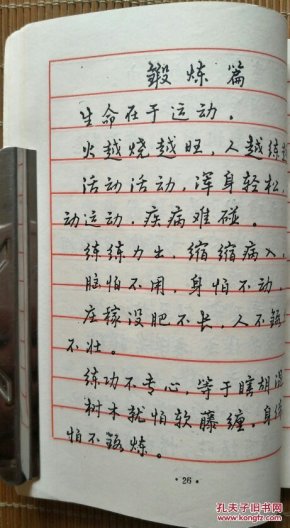 锻炼篇
生命在于运动。
火越烧越旺，人越练越
活动活动，浑身轻松，
动运动，疾病难碰。
练练力出，缩缩病入，
脑怕不用，身怕不动，
庄稼没肥不长，人不锻
不壮。
练功不专心，等于瞎胡混
树木就怕软藤缠，身体
怕不锻炼。
·26·
孔夫子旧书网